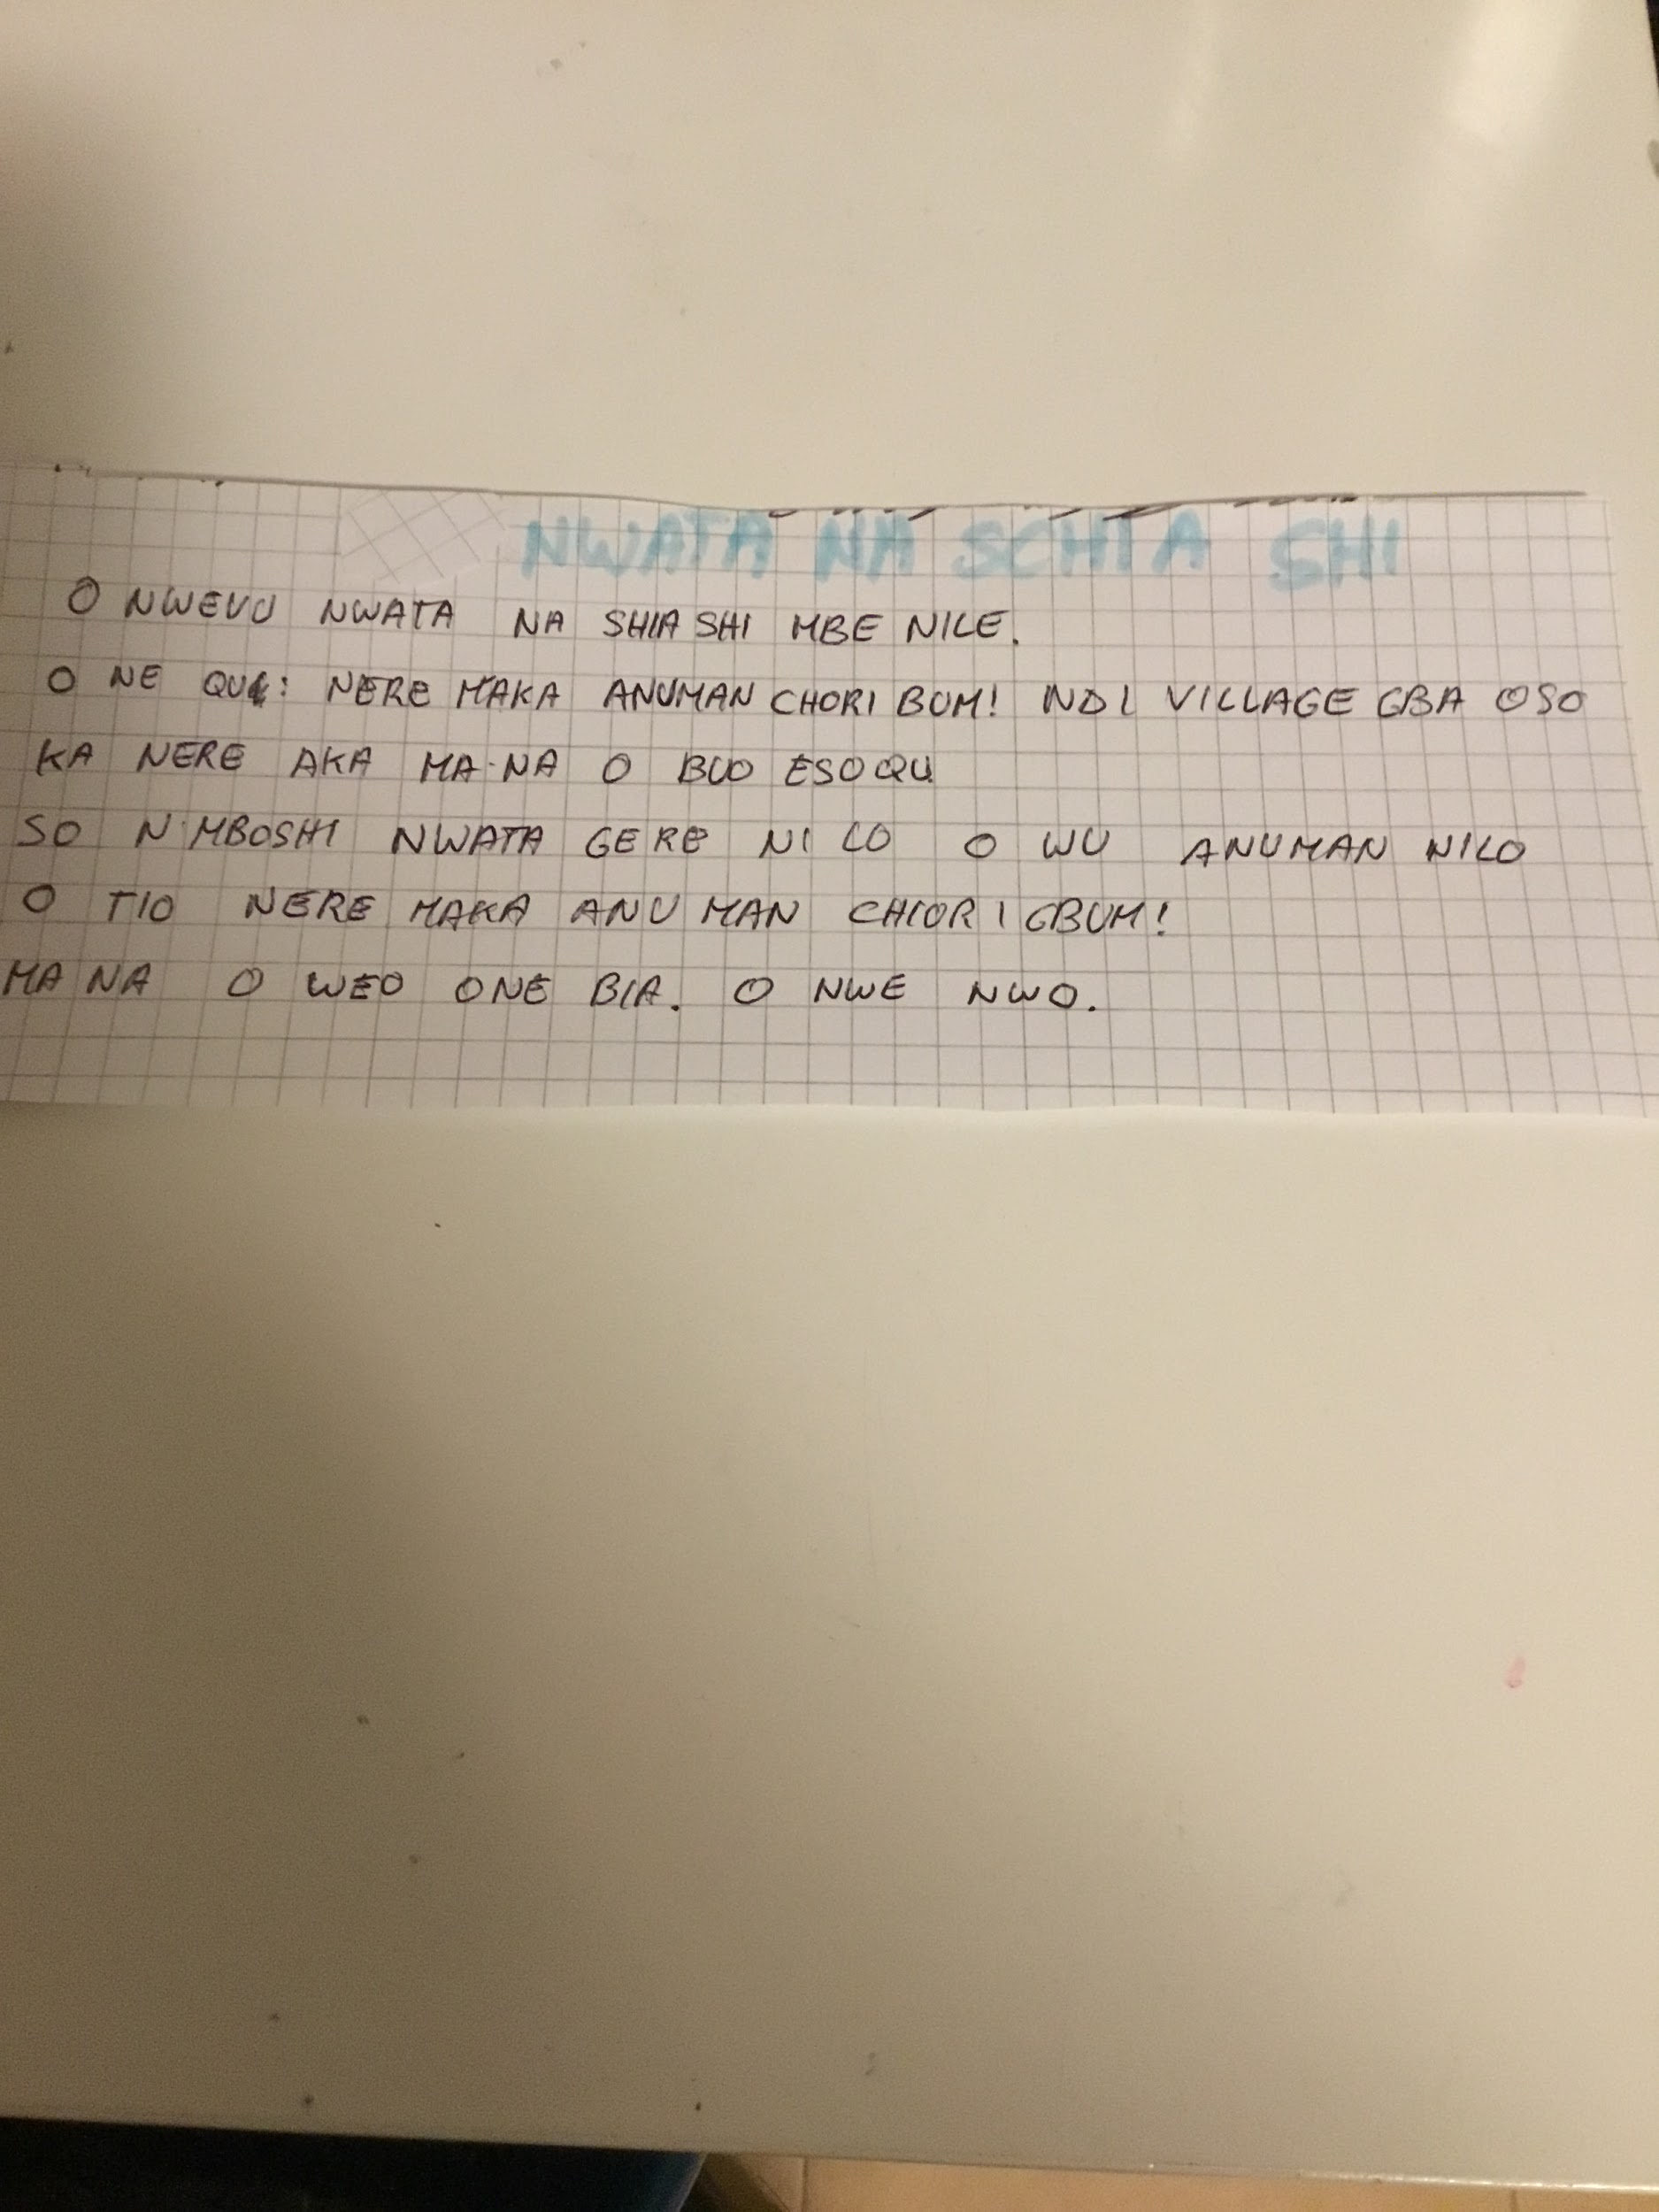 NWATA NA SCHIA SHI
O NWEVU NWATA NA SHIA SHI MBE NILE.
O NE QU: NERE MAKA ANUMAN CHORI BUM! NDI VILLAGE GBA OSO
KA NERE AKA MA-NA O BUO ESOQU
SO N'MBOSHI NWATA GERE NI LO O WU ANUMAN NILO
O TIO NERE MAKA ANU MAN CHIORI GBUM!
MA NA O WEO ONE BIA. O NWE NWO.